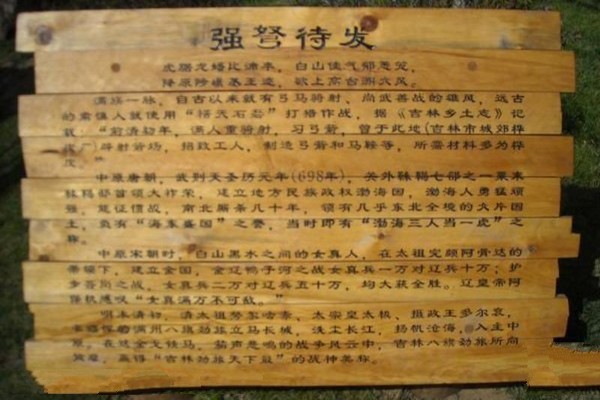 强弩待发
虎踞龙蟠比源丰，白山佳气郁葱笼，
降原陟巘基王迹，欲上高台溯大风。
满族一脉，自古以来就有弓马骑射、尚武善战的雄风，远古
的肃慎人就使用“楛矢石砮”打猎作战，据《吉林乡土志》记
载：“前清初年，满人重骑射，习弓箭，曾于此地（吉林市城郊桦
皮厂）辟射箭场，招致工人，制造弓箭和马鞍等，所需材料多为桦
皮。”
中原唐朝，武则天圣历元年（698年），关外靺鞨七部之一粟末
靺鞨部首领大祚荣，建立地方民族政权渤海国，渤海人勇猛顽
强，能征惯战，南北厮杀几十年，领有几乎东北全境的大片国
土，负有“海东盛国”之誉，当时即有“渤海三人当一虎”之
称。
中原宋朝时，白山黑水之间的女真人，在太祖完颜阿骨达的
带领下，建立金国，金辽鸭子河之战女真兵一万对辽兵十万；护
步答岗之战，女真兵二万对辽兵五十万，均大获全胜。辽皇帝阿
保机感叹“女真满万不可敌。”
明末清初，清太祖努尔哈赤、太宗皇太极、摄政王多尔衮，
率领你的满州八旗劲旅立马长城，洗尘长江，扬帆沧海，入主中
原。在这金戈铁马，鼓声悲鸣的战争风云中，吉林八旗劲旅所向
披靡，赢得“吉林劲旅天下最”的战神美称。